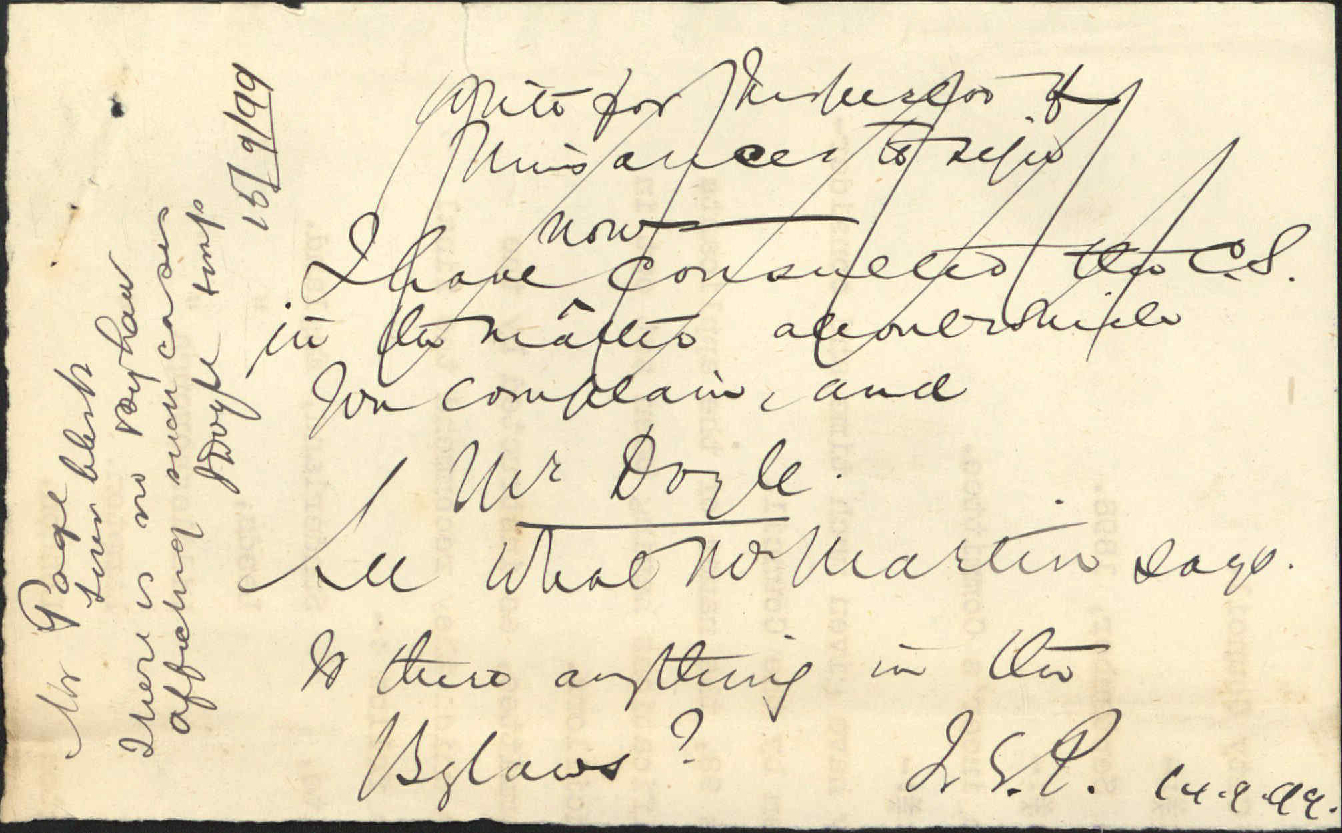 Write for Inspector of
Nuisances to
now
I have consulted the C.S.
in the matter about which
you complain, and
Mr Doyle.
See what Mr Martin says.
Is there anything in the
Bylaws?
14.9.99.
Mr Page
Town Clerk
There is no Bylaw
affecting such cases
JDoyle Insp
15/9/99